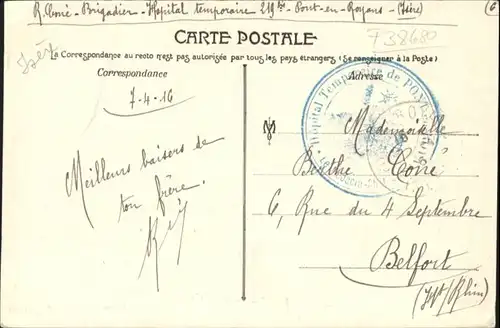 R. Coné - Brigadier - Hôpital temporaire 219 bis - Pont-en-Royans - (Isère)
Isère
T38680
CARTE POSTALE
La Correspondance au recto n'est pas autorisée par tous les pays étrangers (Se renseigner à la Poste)
Correspondance
Adresse
7-4-16
Hôpital Temporaire de PONT
Mademoiselle
Berthe Coné
6, Rue du 4 Septembre
Belfort
(Ht Rhin)
Meilleurs baisers de
ton frère.